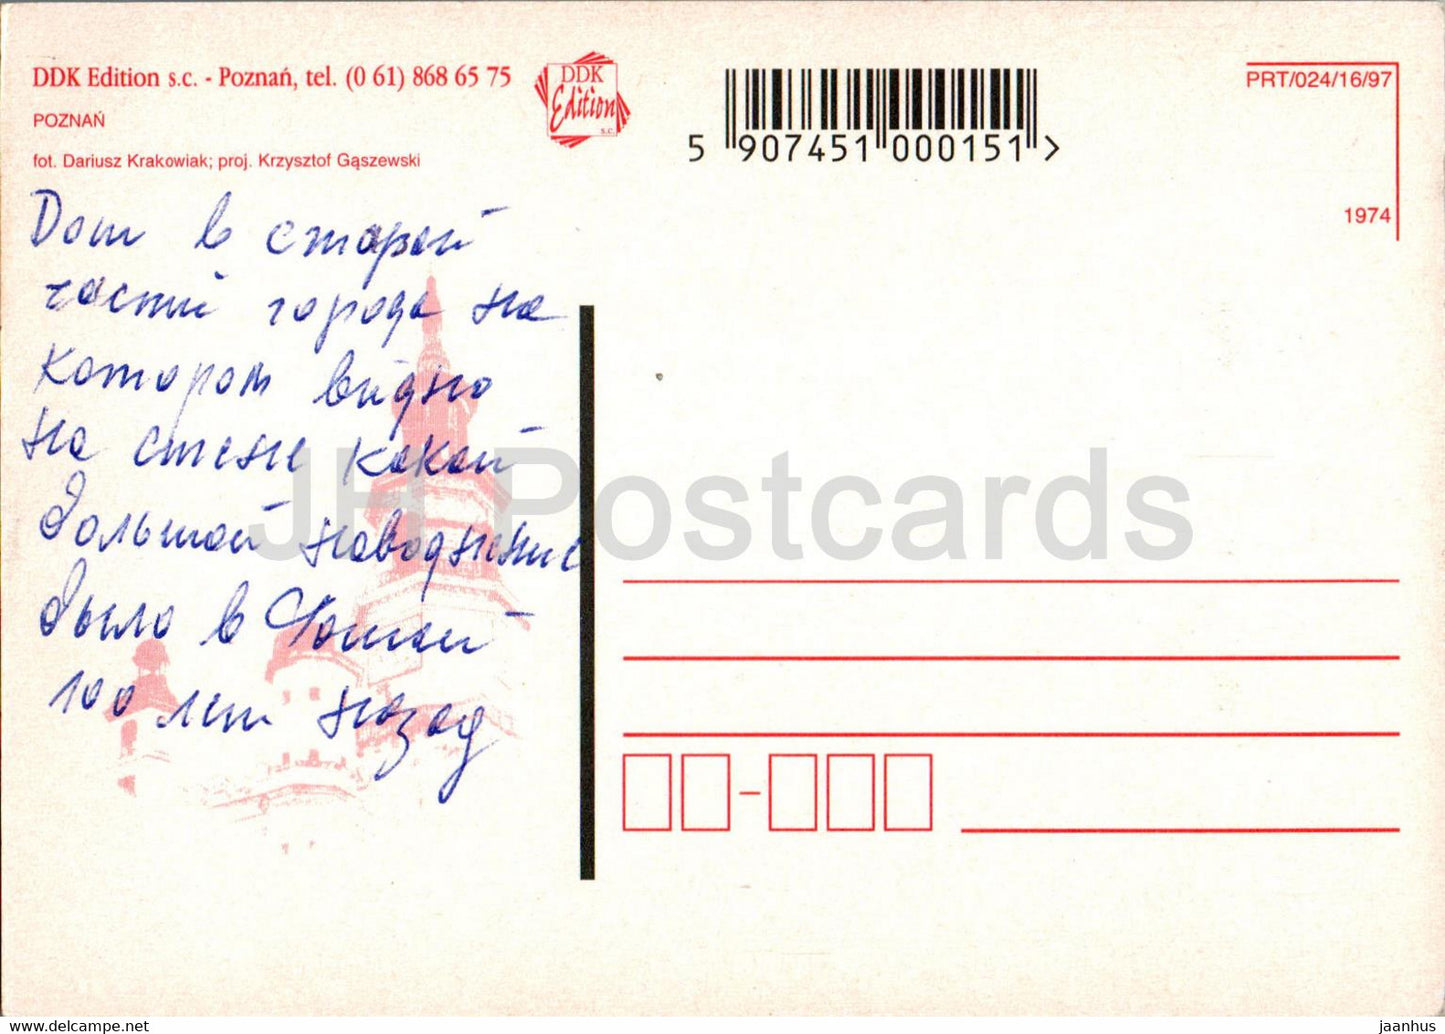 DDK Edition s.c. - Poznań, tel. (0 61) 868 65 75
POZNAŃ
fot. Dariusz Krakowiak; proj. Krzysztof Gąszewski
DDK
Edition
s.c.
5 907451 000151 >
PRT/024/16/97
1974
Дом в старой
части города на
котором видно
на стене какой
большой наводнение
было в
100 лет назад
JH Postcards
www.delcampe.net
jaanhus